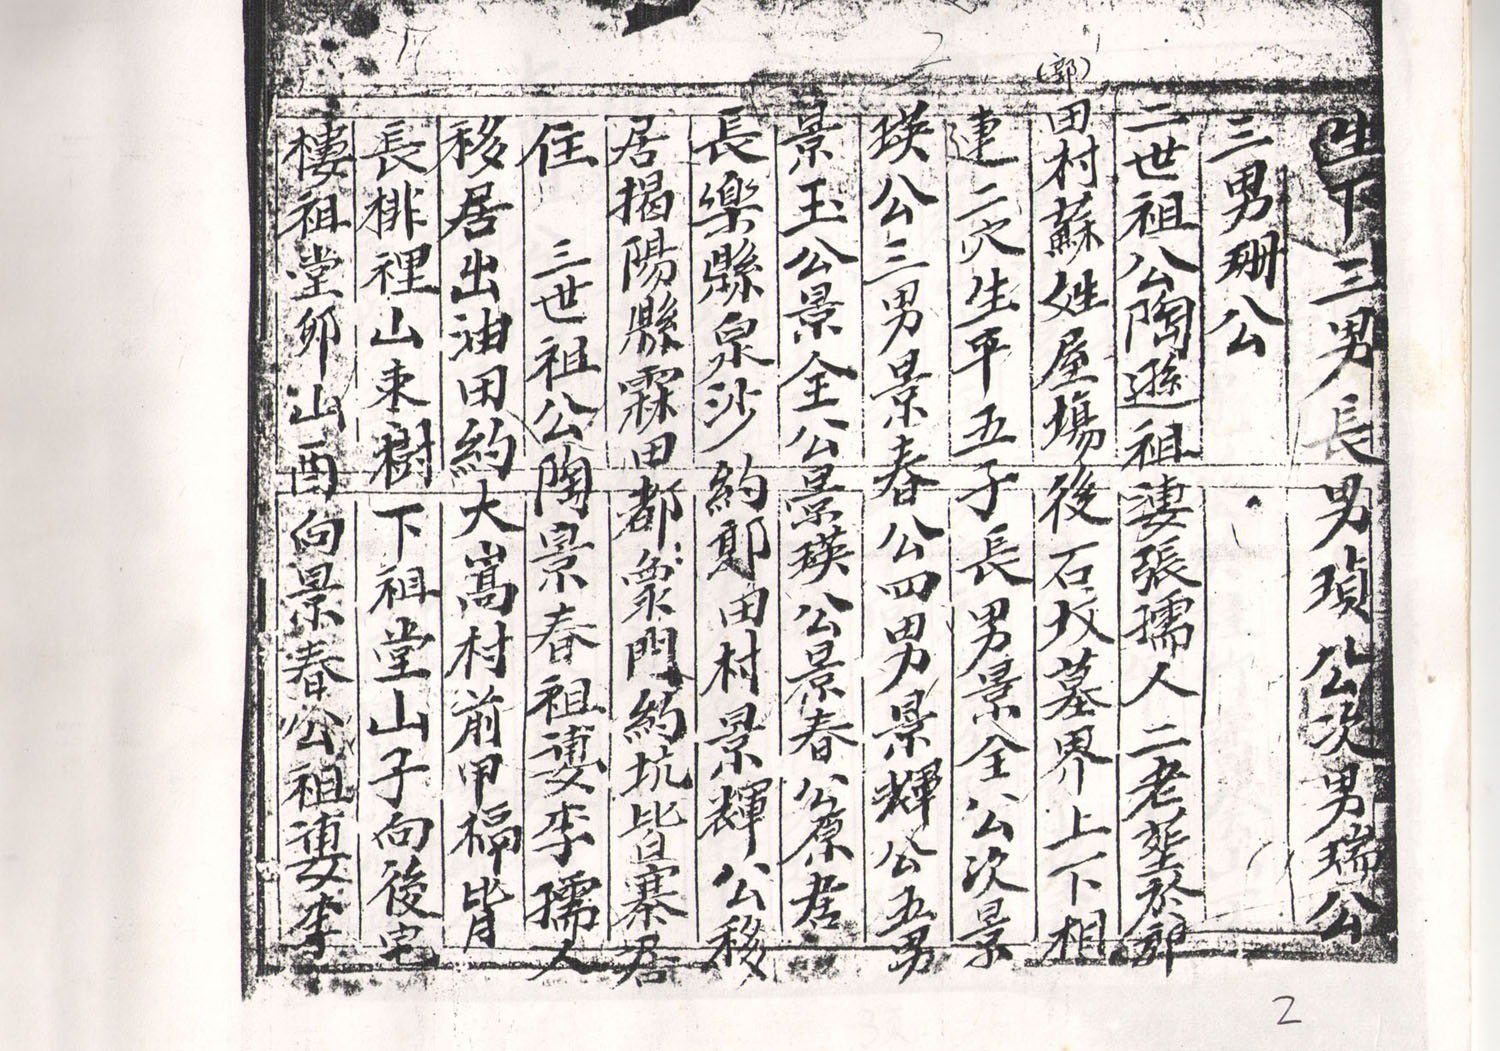 生下三男長男瑱公次男瑞公
三男珊公
二世祖公陶遜祖妻張孺人二老塋於郭
(郭)
田村蘇姓屋塲後石坟墓界上下相
連二穴生平五子長男景全公次景
瑛公三男景春公四男景輝公五男
景玉公景全公景瑛公景春公原居
長樂縣泉沙約鄭田村景輝公移
居揭陽縣霖田都象門約坑背寨居
住 三世祖公陶景春祖妻李孺人
移居出油田約大嵩村前甲楄背
長排裡山朿樹下祖堂山子向後宅
樓祖堂卯山酉向景春公祖妻李
2